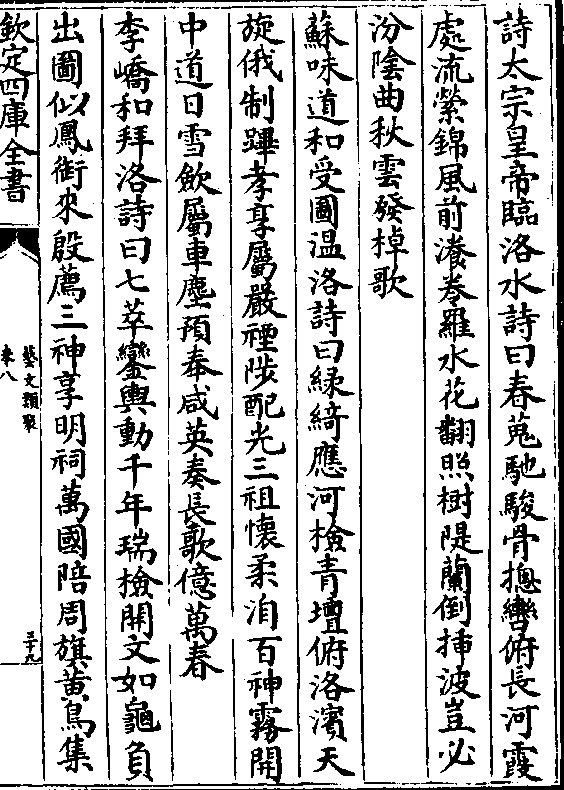 詩太宗皇帝臨洛水詩曰春蒐馳駿骨摠轡俯長河霞
處流縈錦風前漾卷羅水花翻照樹隄蘭倒揷波豈必
汾隂曲秋雲發棹歌
蘇味道和受圖温洛詩曰緑綺應河檢青壇俯洛濱天
旋俄制蹕孝享屬嚴禋陟配光三祖懷柔洎百神霧開
中道日雪斂屬車塵預奉咸英奏長歌億萬春
李嶠和拜洛詩曰七萃鑾輿動千年瑞檢開文如龜負
出圖似鳳銜來殷薦三神享明祠萬國陪周旗黄鳥集
欽定四庫全書
藝文類聚
卷八
三十九